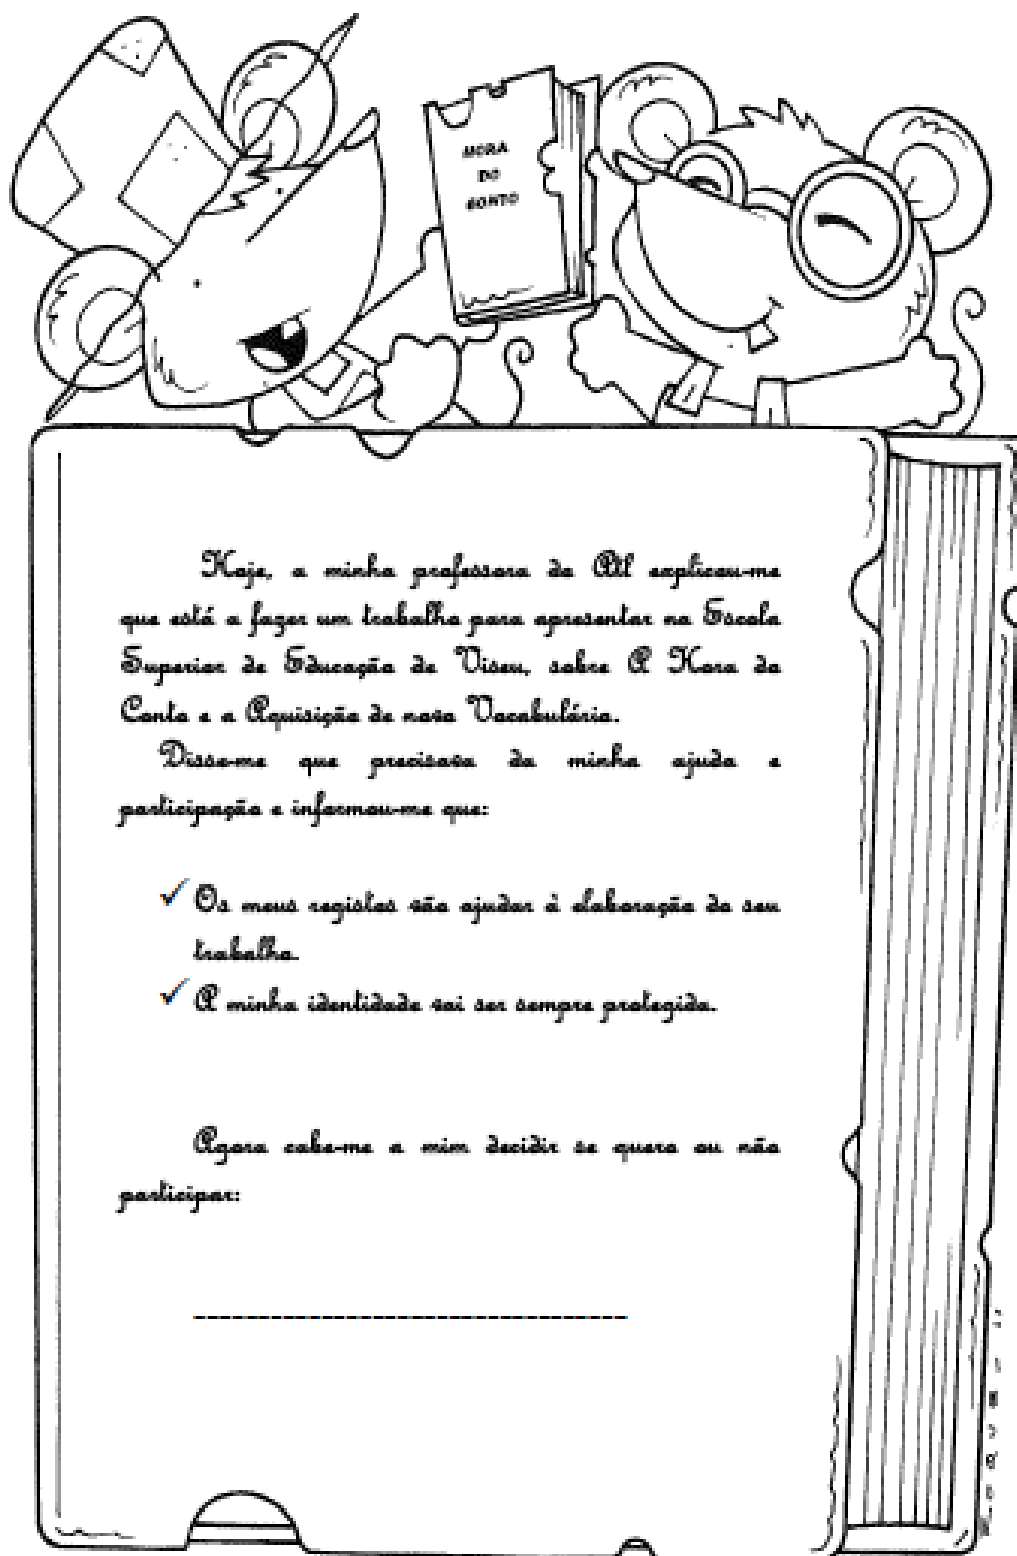 HORA
DO
CONTO
Hoje, a minha professora do Atl explicou-me
que está a fazer um trabalho para apresentar na Escola
Superior de Educação de Viseu, sobre A Hora do
Conto e a Aquisição de novo Vocabulário.
Disse-me que precisava da minha ajuda e
participação e informou-me que:
✓ Os meus registos vão ajudar à elaboração do seu
trabalho.
✓ A minha identidade vai ser sempre protegida.
Agora cabe-me a mim decidir se quero ou não
participar: